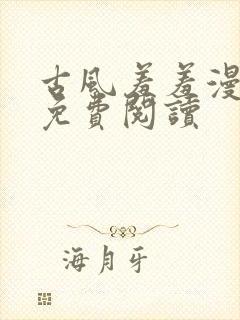 古風羞羞漫
免費閱讀
海月牙